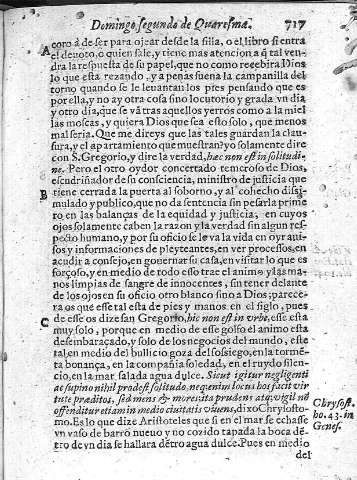 Domingo segundo de Quaresma. 717
A coro à de ser para ojear desde la silla, o el libro si entra
el deuoto, o quien sale, y tiene mas atencion a q̃ tal ven-
dra la respuesta de su papel, que no como recebira Dios
lo que esta rezando. y a penas suena la campanilla del
torno quando se le leuantan los pies pensando que es
por ella, y no ay otra cosa sino locutorio y grada vn dia
y otro dia, que se vã tras aquellos yerros como a la miel
las moscas, y quiera Dios que sea esto solo, que menos
mal seria. Que me direys que las tales guardan la clau-
sura, y el apartamiento que muestran? yo solamente dire
con S. Gregorio, y dire la verdad, hæc non est in solitudi-
ne. Pero el otro oydor concertado temeroso de Dios,
escudriñador de su consciencia, ministro de justicia que
B tiene cerrada la puerta al soborno, y al cohecho dissi-
mulado y publico, que no da sentencia sin pesarla prime
ro en las balanças de la equidad y justicia, en cuyos
ojos solamente caben la razon y la verdad sin algun res-
pecto humano, y por su oficio se le va la vida en oyr ani-
sos y informaciones de pleyteantes, en ver processos, en
acudir a consejo, en gouernar su casa, en visitar lo que es
forçoso, y en medio de todo esso trae el animo y las ma-
nos limpias de sangre de innocentes, sin tener delante
de los ojos en su oficio otro blanco sino a Dios; parece-
ra os que esse tal esta de pies y manos en el siglo, pues
C de esse os dize san Gregorio, hic non est in vrbe, esse esta
muy solo, porque en medio de esse golfo el animo esta
desembaraçado, y solo de los negocios del mundo, este
tal en medio del bullicio goza del sossiego, en la tormẽ-
ta bonança, en la compañia soledad, en el ruydo silen-
cio, en la mar salada agua dulce. Sicut igitur negligenti
ac supino nihil prodest solitudo, neq; enim locus hos facit vir
tute præditos, sed mens & mores: ita prudens atq; vigil nõ
offenditur etiam in medio ciuitatis viuens, dixo Chrysosto-
mo. Es lo que dize Aristoteles que si en el mar se echasse
vn vaso de barro nueuo y no cozido tapada la boca dẽ-
tro de vn dia se hallara dẽtro agua dulce. Pues en medio
del
Chrysost.
ho. 43. in
Genes.